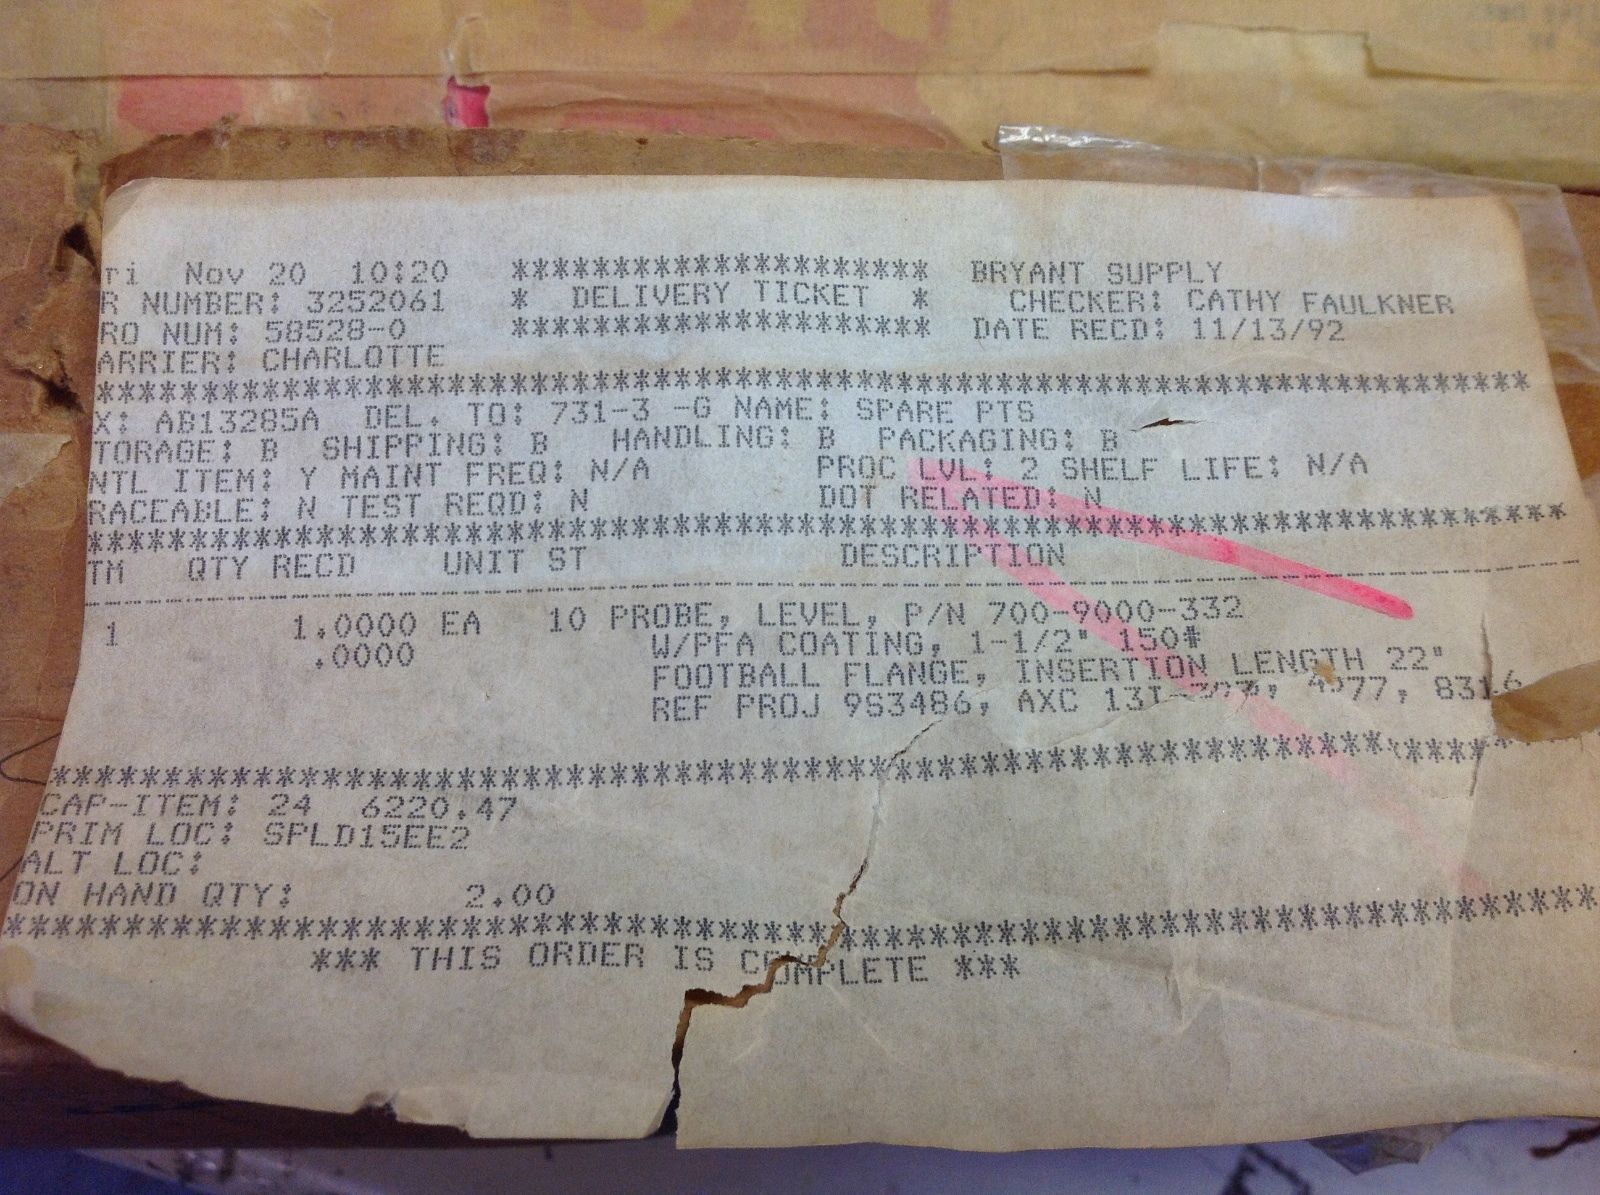 ri Nov 20 10:20 ********************* BRYANT SUPPLY
R NUMBER: 3252061 * DELIVERY TICKET * CHECKER: CATHY FAULKNER
RO NUM: 58528-0 ********************* DATE RECD: 11/13/92
ARRIER: CHARLOTTE
X: AB13285A DEL. TO: 731-3 -G NAME: SPARE PTS
TORAGE: B SHIPPING: B HANDLING: B PACKAGING: B
NTL ITEM: Y MAINT FREQ: N/A PROC LVL: 2 SHELF LIFE: N/A
RACEABLE: N TEST REQD: N DOT RELATED: N
TM QTY RECD UNIT ST DESCRIPTION
1 1.0000 EA 10 PROBE, LEVEL, P/N 700-9000-332
.0000 W/PFA COATING, 1-1/2" 150#
FOOTBALL FLANGE, INSERTION LENGTH 22"
REF PROJ 9S3486, AXC
CAP-ITEM: 24 6220.47
PRIM LOC: SPLD15EE2
ALT LOC:
ON HAND QTY: 2.00
*** THIS ORDER IS COMPLETE ***